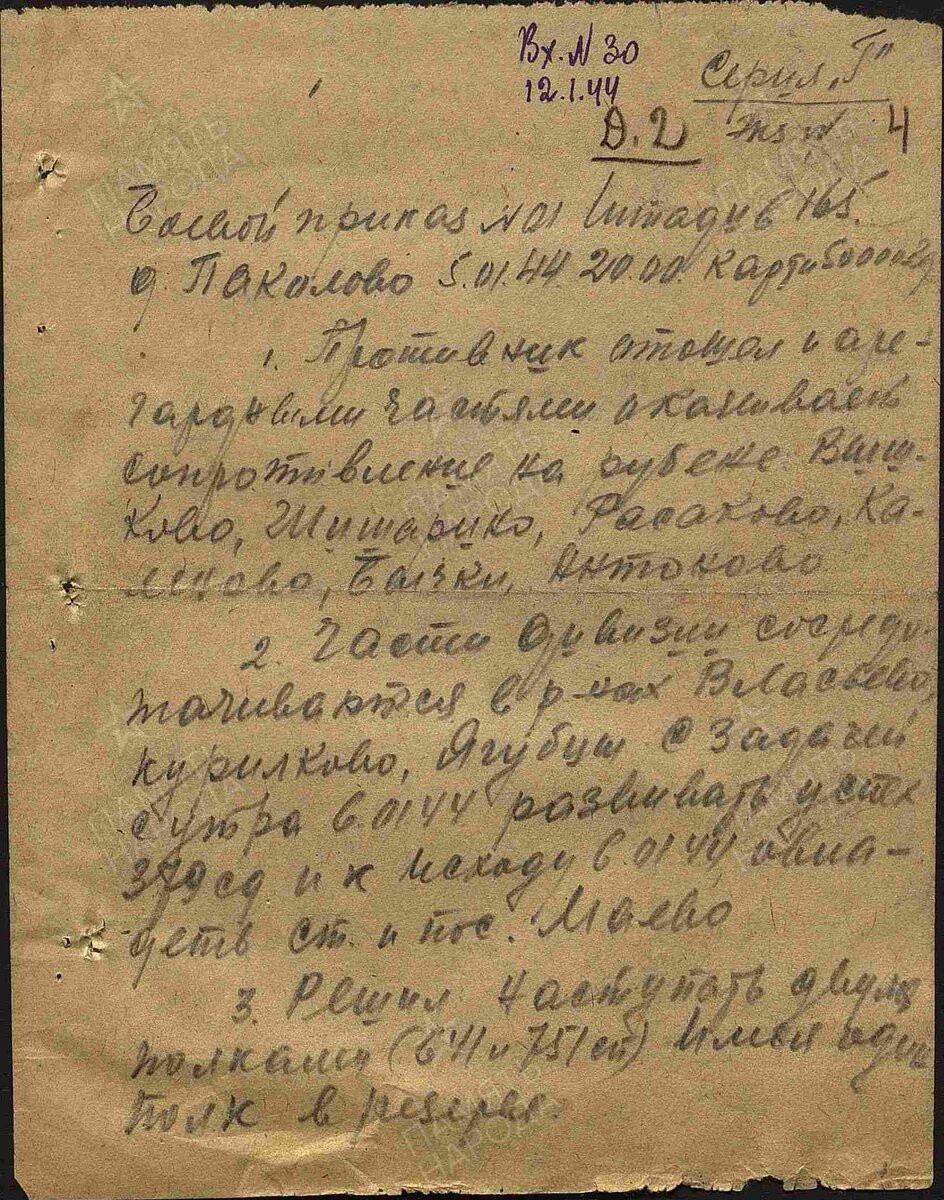 Вх. N 30
12.1.44
Серия „Г"
Экз N 4
Д. 2
Боевой приказ N 01 Штадив 165.
д. Паколово 5.01.44 20.00. Карта 50000
1. Противник отошол и аре-
гардными частями оказывает
сопротивление на рубеже
ково, Шишарино, Расаково, Ка-
Бычки, Антоково
2. Части дивизии сосредо-
тачиваются в р-нах Власьево,
курилково, Ягубцы с задачей
с утра 6.01.44 развивать успех
379 сд и к исходу 6.01.44 овла-
деть ст. и пос. Маево
3. Решил наступать двумя
полками (641 и 751 сп) имея один
полк в резерве.
ПАМЯТЬ НАРОДА